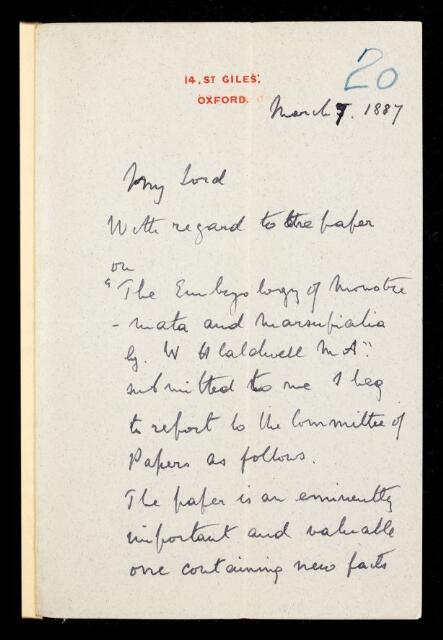 20
14, ST GILES',
OXFORD.
March 7. 1887
My Lord
With regard to the paper
on
"The Embryology of Monotre
- mata and Marsupialia
by. W H Caldwell M A".
submitted to me I beg
to report to the Committee of
Papers as follows.
The paper is an eminently
important and valuable
one containing new facts